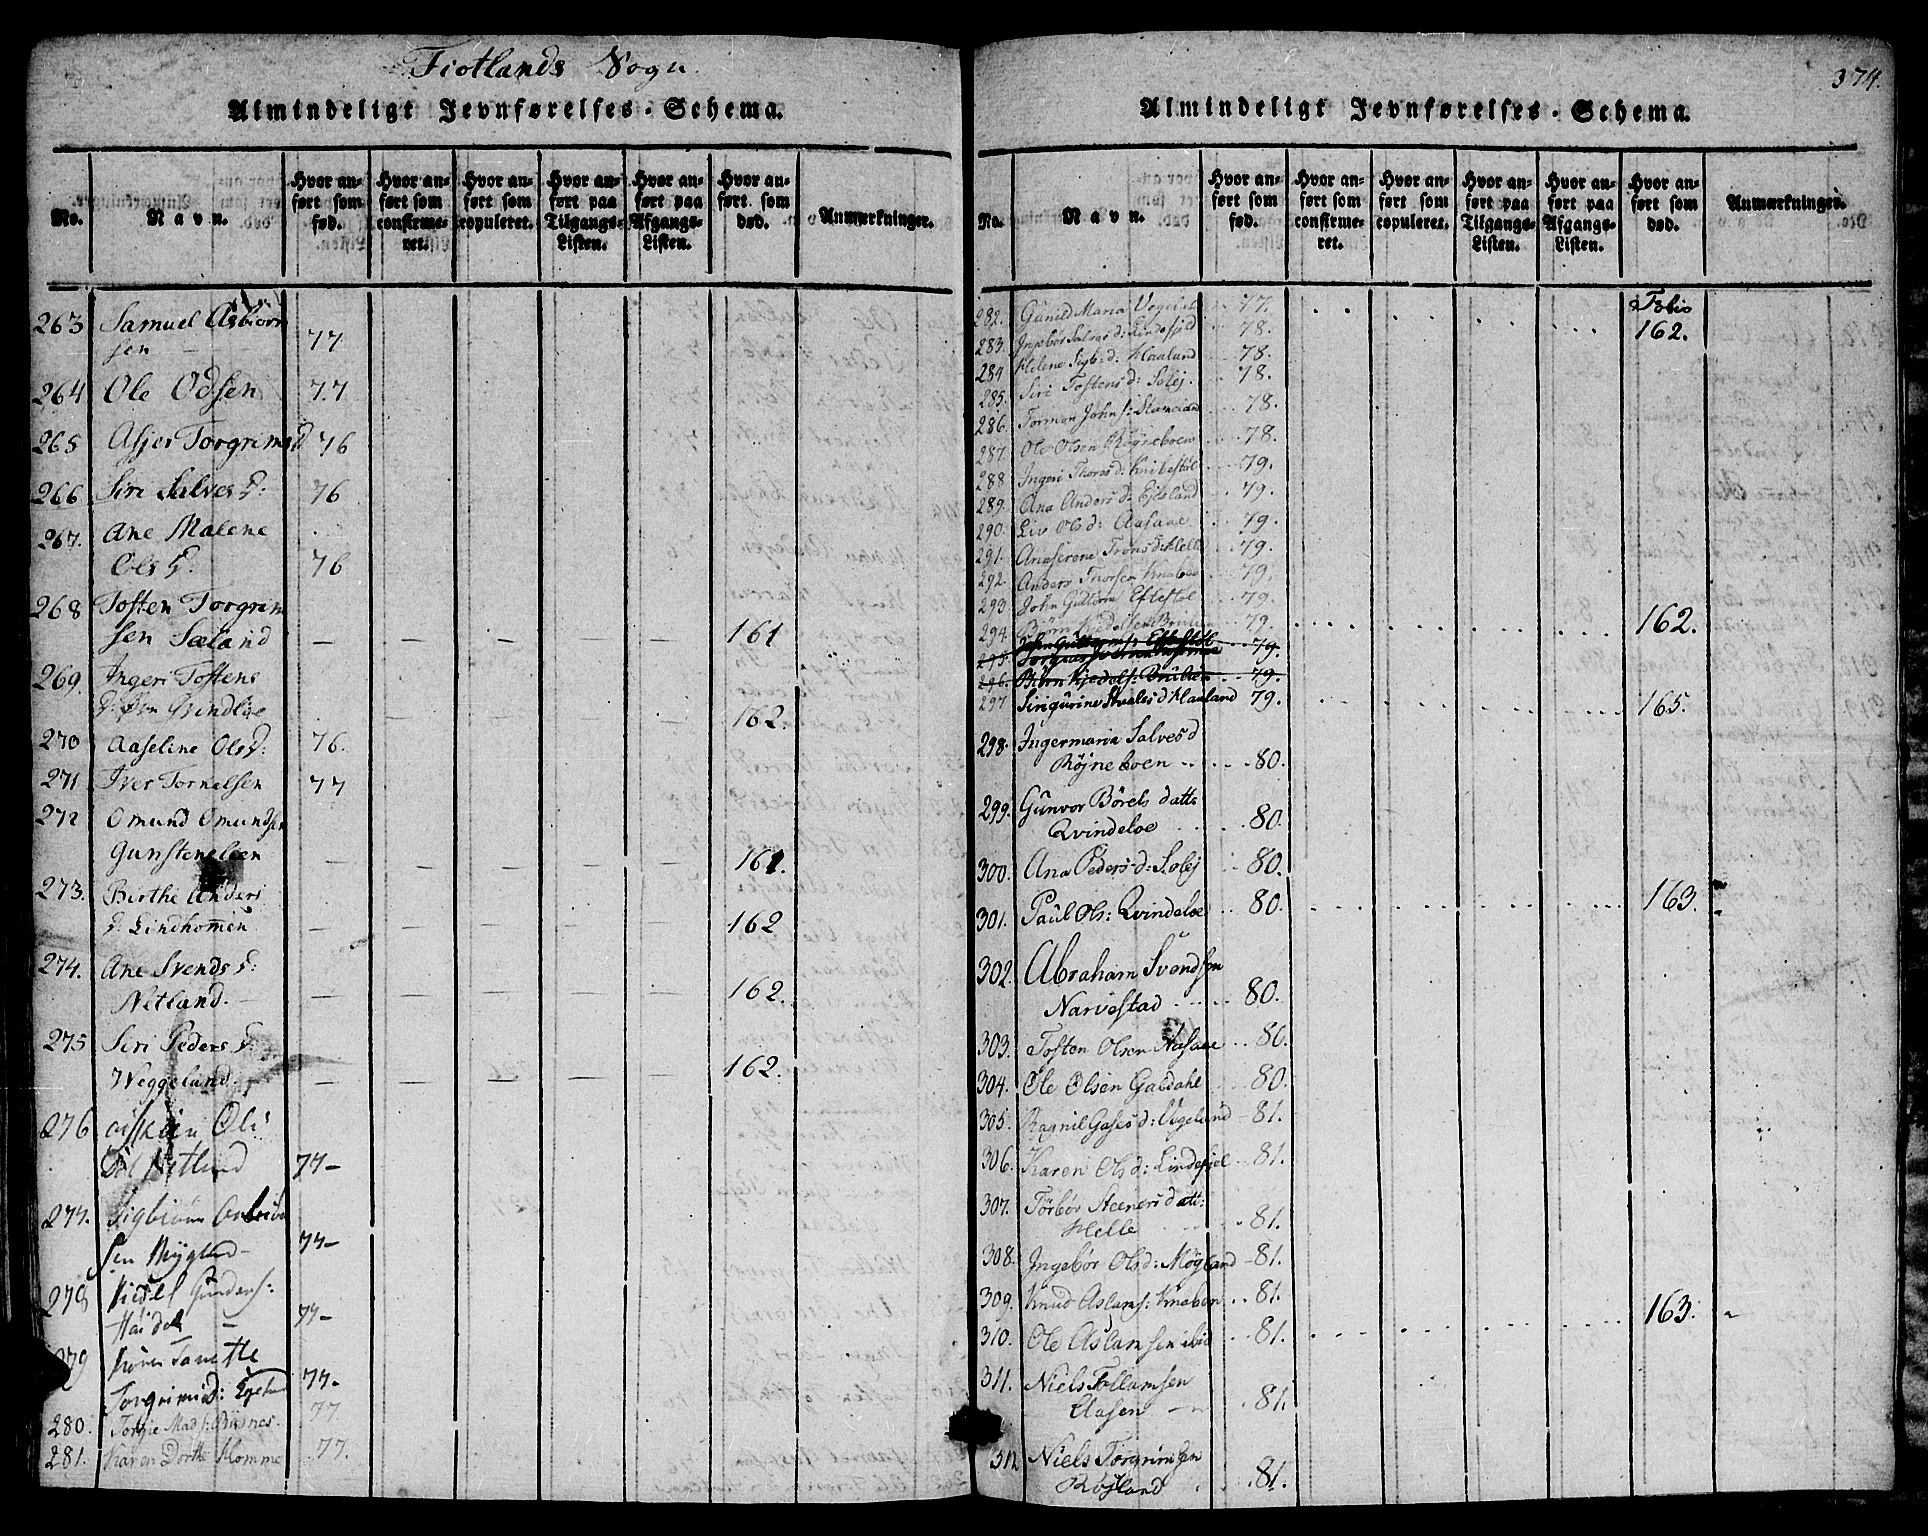 Fiotlands Sogn
Almindeligt Jevnførelses-Schema.
No.
Navn.
Hvor anført som fød.
Hvor anført som confirmeret.
Hvor anført som copuleret.
Hvor anført paa Tilgangs-Listen.
Hvor anført paa Afgangs-Listen.
Hvor anført som død.
Anmærkninger.
263 Samuel Asbiørn
sen 77
264 Ole Odsen 77
265 Asjer Torgrims d 76
266 Siri Salves D: 76
267. Ane Malene
Ols D. 76
268 Tosten Torgrim
sen Sæland — — — — — 161
269. Ingeri Tostens
D: Qvindloe — — — — 162.
270 Aaseline Ols D: 76.
271 Iver Tornelsen 77
272 Omund Omundsen
Gunstensleen — — — — — 161.
273. Birthe Anders
D. Lindhommen — — — — — 162
274. Ane Svends D:
Netland. — — — — — 162.
275 Siri Peders D:
Weggeland. — — — — — 162.
276 Ols
Netland 77—
277. Sigbiørn Asbiørn
sen Myglnd— 77—
278 Kidel Gunders:
77—
279 Tanette
Torgrimsd: Egeland 77-
280. Torgie Mads: Risnes. 77
281. Karen Dorthe Homme 77.
374.
Almindeligt Jevnførelses-Schema.
No.
Navn.
Hvor anført som fød.
Hvor anført som confirmeret.
Hvor anført som copuleret.
Hvor anført paa Tilgangs-Listen.
Hvor anført paa Afgangs-Listen.
Hvor anført som død.
Anmærkninger.
Folio
282. Gunild Maria 77. 162.
283. Ingebor Salves d: Lindefjeld 78.
284 Helene Sigb: d: Haaland 78.
285. Siri Tostens d: Solej. 78.
286. Tormon Johns: 78.
287. Ole Olsen Røjneboen 78.
288 Ingeri Thores d: Knibestøl 79.
289. Ana Anders d: Ejesland 79.
290. Liv Ols d: Aasaae 79.
291. Anaserene Trons d: Helle 79.
292. Anders Thorsen Knaben 79.
293. John Guttorm Eftestøl 79.
294. Biørn Kjedelsen 79. 162.
295. John Guttorms: Eftestøl 79.
296. Biørn Kjedels: 79.
297. Sirigurine d Haaland 79. 165.
298. Ingermaria Salves d
Røjneboen 80.
299. Gunvor Børels datt:
Qvindeloe 80.
300. Ana Peders d: Solej 80.
301. Paul Ols: Qvindeloe 80. 163.
302. Abraham Svendsen
Narvestad 80.
303. Tosten Olsen Aasaae 80.
304. Ole Olsen Galdahl 80.
305. Ragnil Gases d: Ugeland 81.
306. Karen Ols d: Lindefjel 81.
307. Torbor Steeners datt:
Helle 81.
308. Ingebor Ols d: Møgland 81.
309. Knud Aslams: Knaben 81. 163.
310. Ole Aslamsen ibid 81.
311. Niels Tollamsen
Aasen 81.
312 Niels Torgrimsen
Røjsland 81.